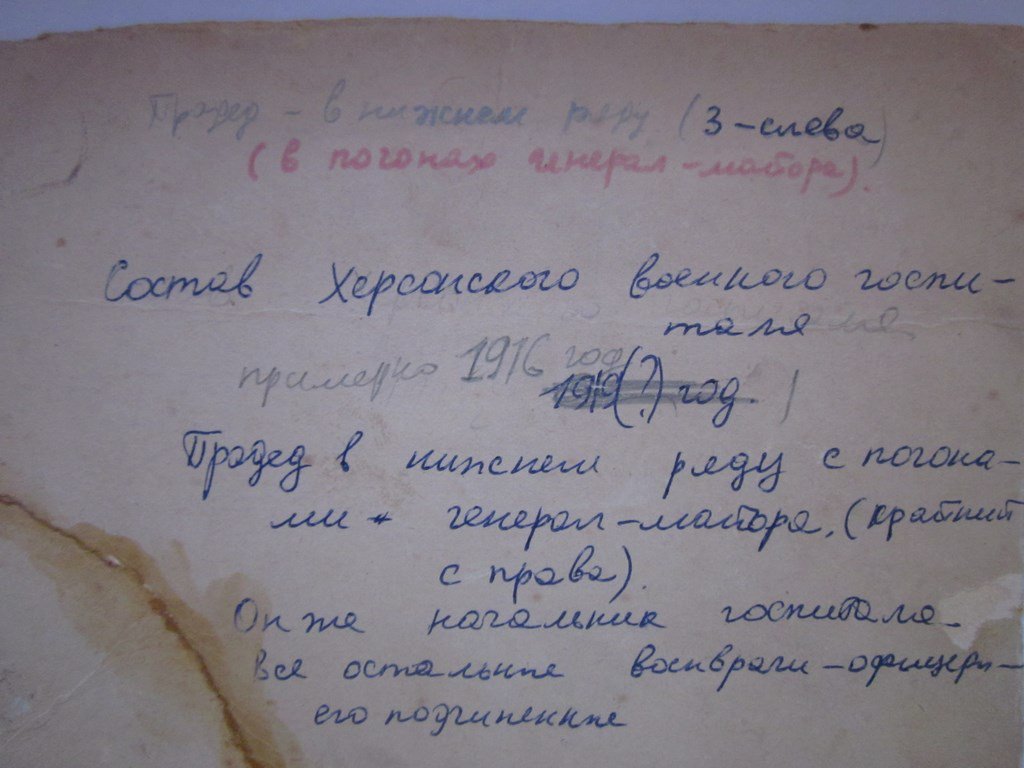 Прадед - в нижнем ряду (3-слева)
(в погонах генерал-майора).
Состав Херсонского военного госпи-
таля
примерно 1916 год
1919(?) год.
Прадед в нижнем ряду с погона-
ми - генерал-майора, (крайний
с права).
Он же начальник госпиталя.
Все остальные военврачи-офицеры-
его подчиненные